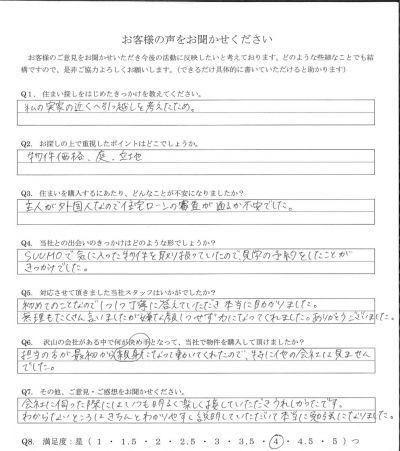 お客様の声をお聞かせください
お客様のご意見をお聞かせいただき今後の活動に反映したいと考えております。どのような些細なことでも結
構ですので、是非ご協力よろしくお願いします。（できるだけ具体的に書いていただけると助かります）
Q1. 住まい探しをはじめたきっかけを教えてください。
私の実家の近くへ引っ越しを考えたため。
Q2. お探しの上で重視したポイントはどこでしょうか。
物件価格、庭、立地
Q3. 住まいを購入するにあたり、どんなことが不安になりましたか？
主人が外国人なので住宅ローンの審査が通るか不安でした。
Q4. 当社との出会いのきっかけはどのような形でしょうか？
SUUMOで気に入った物件を取り扱っていたので見学の予約をしたことが
きっかけでした。
Q5. 対応させて頂きました当社スタッフはいかがでしたか？
初めてのことなので1つ1つ丁寧に答えていただき本当に助かりました。
無理もたくさん言いましたが嫌な顔1つせず力になってくれました。ありがとうございました。
Q6. 沢山の会社がある中で何が決め手となって、当社で物件を購入して頂けましたか？
担当の方が最初から親身になって動いてくれたので、特に他の会社は見ません
でした。
Q7. その他、ご意見・ご感想をお聞かせください。
会社に伺った際にはいつも明るく楽しく接していただきうれしかったです。
わからないところはきちんとわかりやすく説明していただいて本当に勉強になりました。
Q8. 満足度：星（ 1 ・ 1.5 ・ 2 ・ 2.5 ・ 3 ・ 3.5 ・ 4 ・ 4.5 ・ 5 ）つ